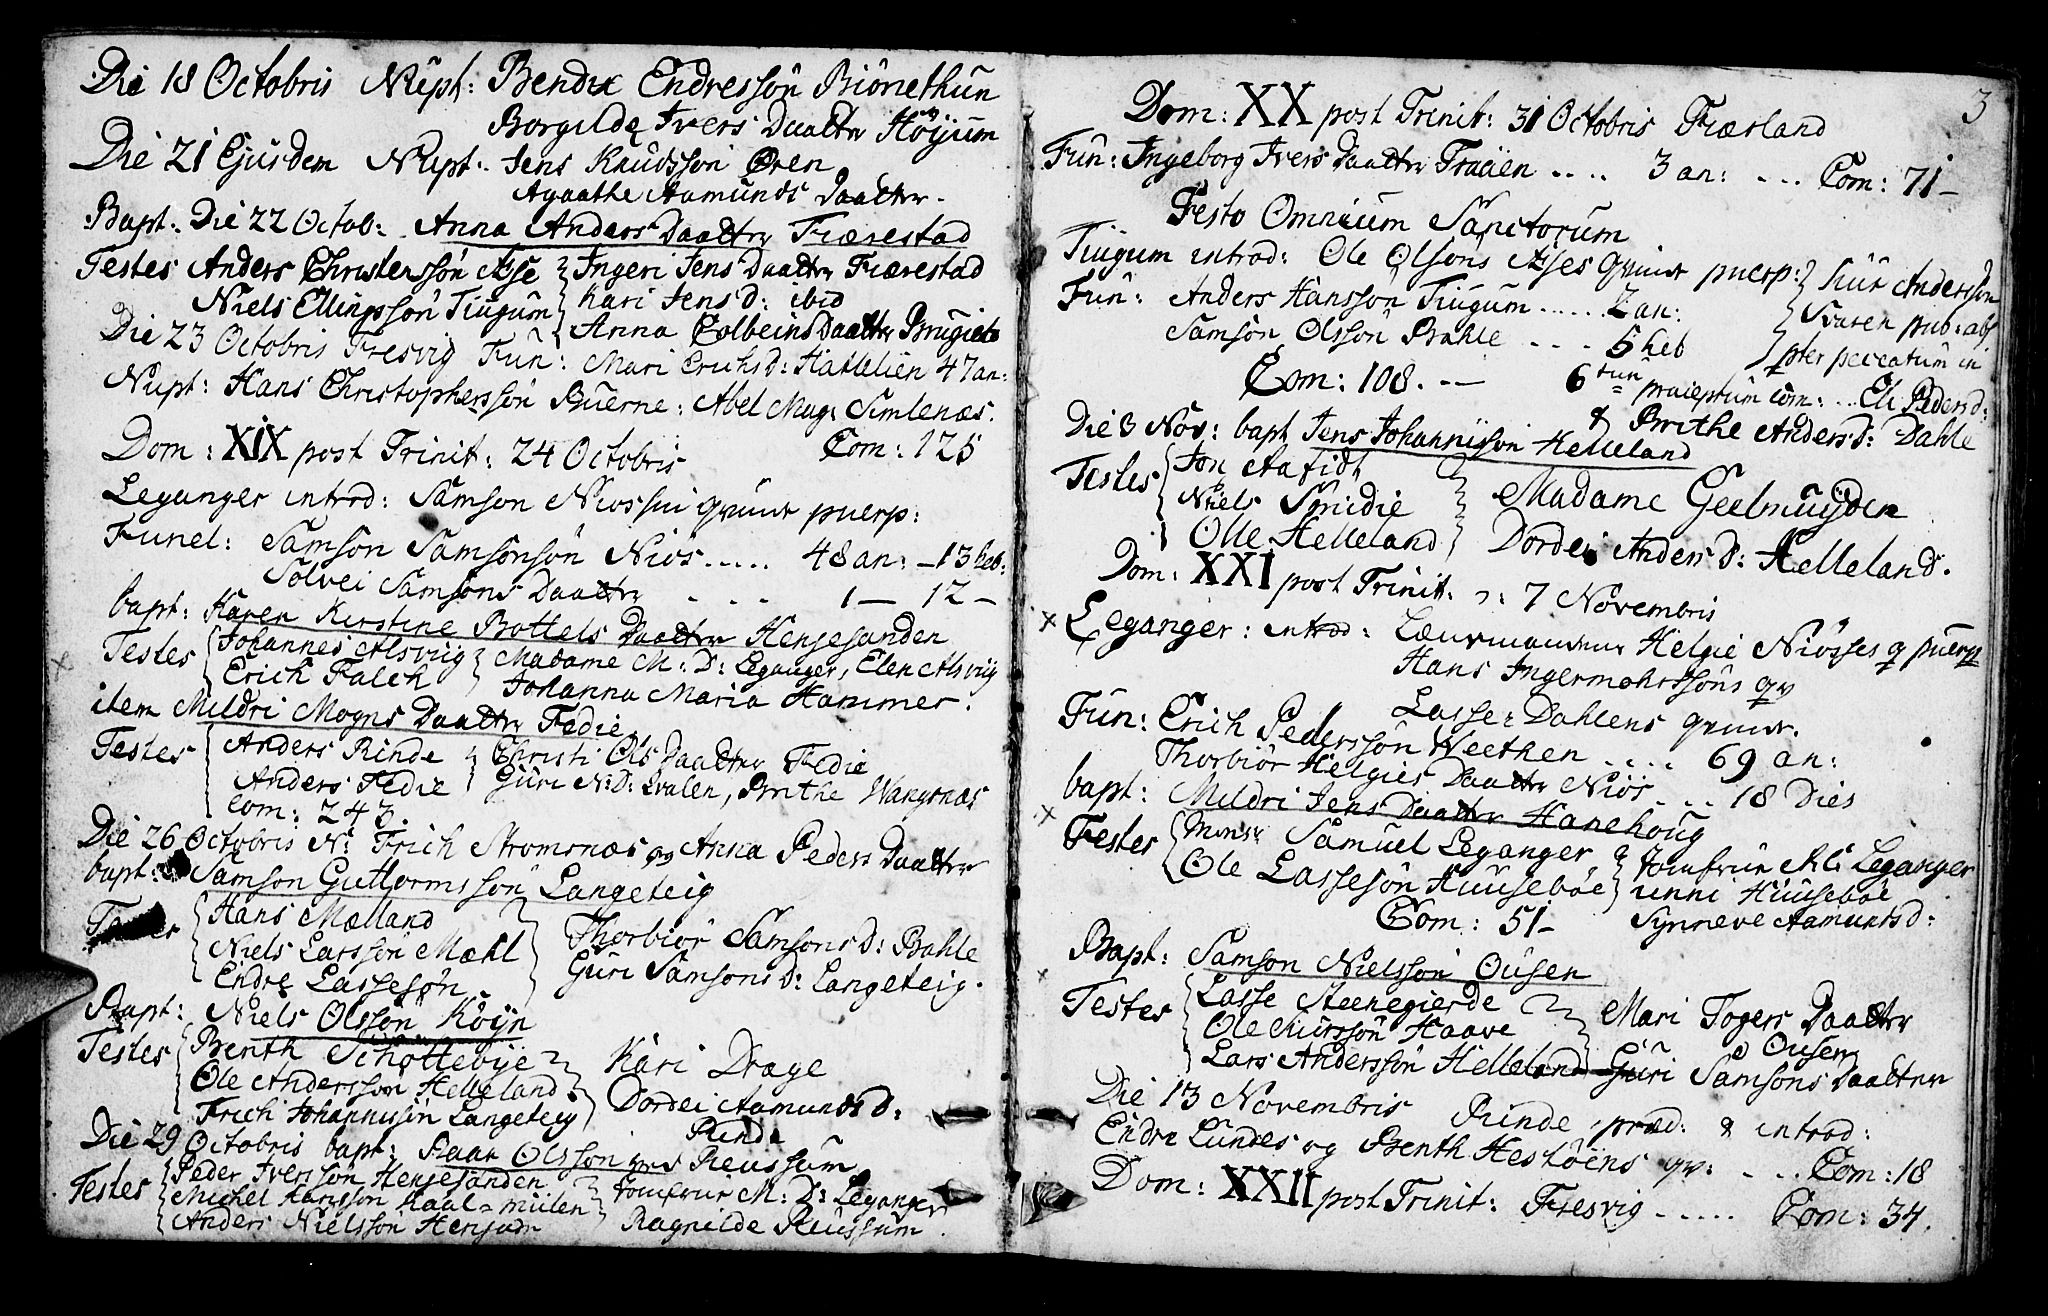 Die 18 Octobris Nupt: Bendix Endressön Biönethun
Borgilde Ivers Daatter Höÿum
Die 21 Ejusdem Nupt: Jens Knudssön Øren
Agaathe Aamunds Daatter
Bapt: Die 22 Octob: Anna Anders Daatter Fiærestad
Testes Anders Christerssön Ase Ingeri Jens Daatter Fiærestad
Niels Ellingssön Tiugum Kari Jens d: ibid
Anna Colbeins Daatter
Die 23 Octobris Fresvig Fun: Mari Erichs d: Hatlelien 47 an:
Nupt: Hans Christopherssön Buerne: Abel Mag: Simlenæs.
Dom: XIX post Trinit: 24 Octobris Com: 125
Leganger introd: Samson qvinde puerp:
Funel: Samson Samsonsön Niös..... 48 an: - 13 heb:
Solvei Samsons Daatter .... 1 — 12 —
bapt: Karen Kirstine Bottels Daatter Henjesanden
Testes Johannes Alsviig Madame M: D: Leganger, Elen Alsviig
Erich Falch Johanna Maria Hammer.
item Mildri Mogns Daatter Fedie
Testes Anders Rinde Christi Ols Daatter Fedie
Anders Fedie Guri N: D: Qvalen, Brithe Wangsnæs
Com: 243.
Die 26 Octobris N: Erich Stromsnæs og Anna Peders Daatter
bapt: Samson Guttormssön Langeteig
Testes Hans Mæland
Niels Larssön Mæhl Thorbiör Samsons D: Bahle
Endre Lassesön Guri Samsons D: Langeteig.
Bapt: Niels Olssön
Testes Benth Kari Drage
Ole Anderssön Helleland Dordei Aamunds d:
Erich Johannissön Langeteig Rinde
Die 29 Octobris bapt: Olsson Reussum
Testes Peder Iverssön Henjesanden
Michel Hanssön Jomfrue M: D: Leganger
Anders Nielssön Henjum Ragnilde Reussum.
3
Dom: XX post Trinit: 31 Octobris Fiærland
Fun: Ingeborg Ivers Daatter .... 3 an: ... Com: 71 —
Festo Omnium Sanctorum
Tiugum introd: Ole Olsöns Ases qvinde puerp: Anderssön
Fun: Anders Hanssön Tiugum ..... 2 an: Svaren pub: abs
Samsön Olssön Bahle .... 5 heb pter peccatum in
Com: 108. — 6tum præceptum com: .. Eli Peders d:
& Brithe Anders d: Dahle
Die 3 Nov: bapt Jens Johannissön Helleland
Testes Jon
Niels Smidie Madame Geelmuÿden
Olle Helleland Dordei Anders d: Helleland.
Dom: XXI post Trinit: 7 Novembris
Leganger: introd: Helgie Niösses q puerp
Hans Ingermohrssöns qv
Lasse Dahlens qvinde.
Fun: Erich Pederssön Weethen .... 69 an:
Thorbiör Helgies Daatter Niös ... 18 Dies
bapt: Mildri Jens Daatter Hanehoug
Testes Monsr Samuel Leganger Jomfrue Leganger
Ole Lassesön Huuseböe unni Huuseböe
Com: 51 — Synneve Aamunds d:
Bapt: Samson Nielssön Ousen
Testes Lasse Steenegierde Mari Togers Daatter
Ole Haave Ousen
Lars Anderssön Helleland Guri Samsons Daatter
Die 13 Novembris Rinde præd: & introd:
Endre Lundes og Benth Hestöens qv: ... Com: 18
Dom: XXII post Trinit: Fresvig ..... Com: 34.